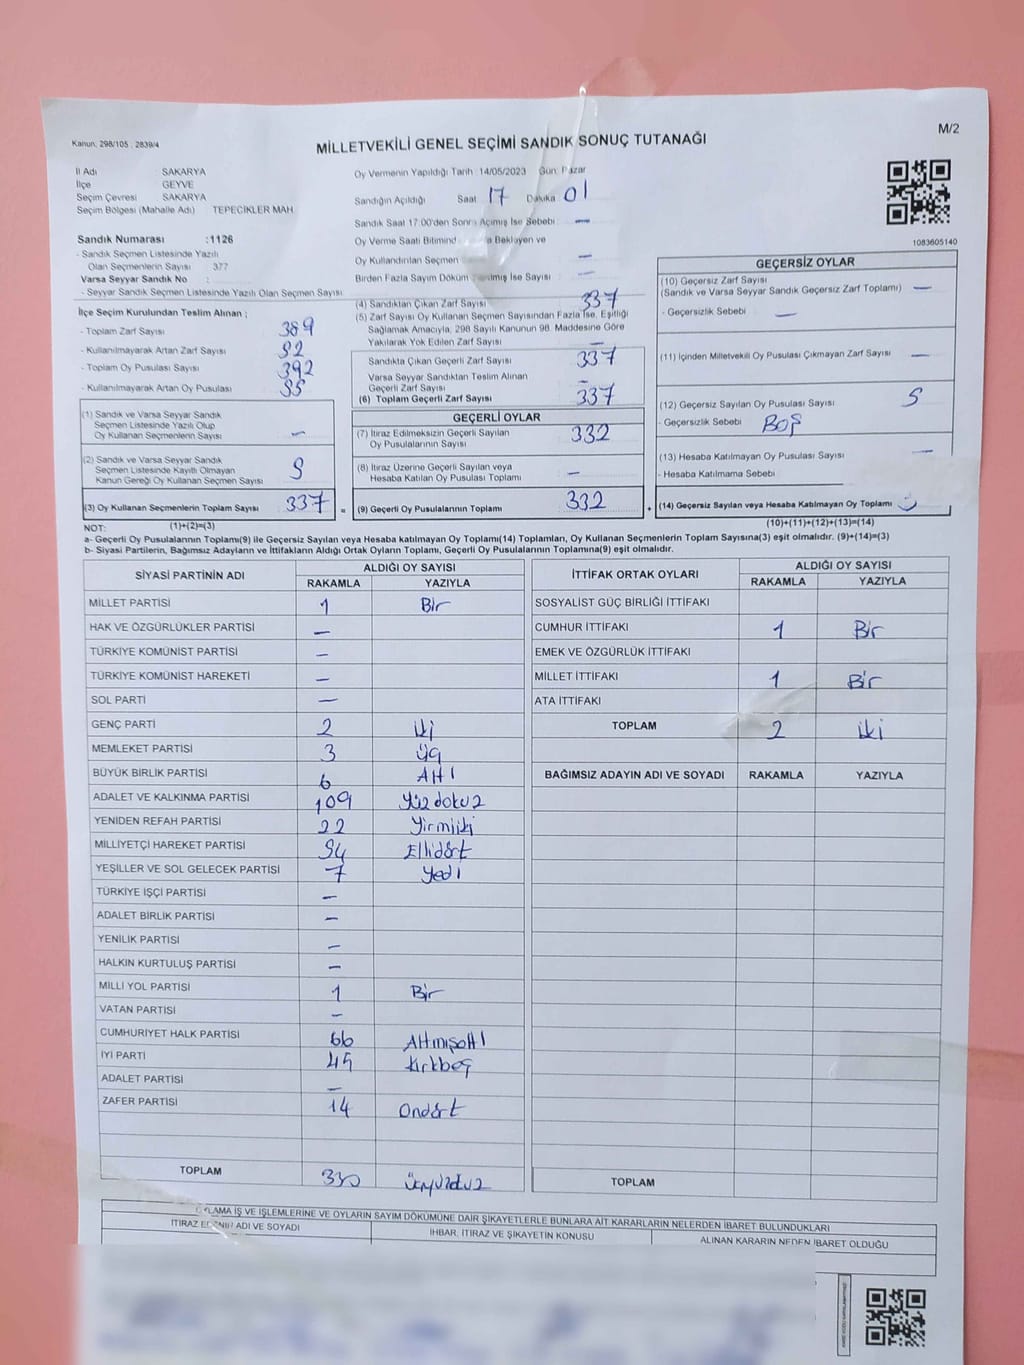 Kanun, 298/105 , 2839/4
MİLLETVEKİLİ GENEL SEÇİMİ SANDIK SONUÇ TUTANAĞI
M/2
İl Adı SAKARYA
İlçe GEYVE
Seçim Çevresi SAKARYA
Seçim Bölgesi (Mahalle Adı) TEPECİKLER MAH.
Sandık Numarası :1126
- Sandık Seçmen Listesinde Yazılı
Olan Seçmenlerin Sayısı 377
Varsa Seyyar Sandık No :
- Seyyar Sandık Seçmen Listesinde Yazılı Olan Seçmen Sayısı
Oy Vermenin Yapıldığı Tarih 14/05/2023 Gün: Pazar
Sandığın Açıldığı Saat 17 Dakika 01
Sandık Saat 17:00'den Sonra Açılmış İse Sebebi : —
Oy Verme Saati Bitiminde Bekleyen ve
Oy Kullandırılan Seçmen —
Birden Fazla Sayım Döküm Yapılmış İse Sayısı —
1083605140
İlçe Seçim Kurulundan Teslim Alınan ;
- Toplam Zarf Sayısı 389
- Kullanılmayarak Artan Zarf Sayısı 52
- Toplam Oy Pusulası Sayısı 392
- Kullanılmayarak Artan Oy Pusulası 55
(1) Sandık ve Varsa Seyyar Sandık
Seçmen Listesinde Yazılı Olup
Oy Kullanan Seçmenlerin Sayısı —
(2) Sandık ve Varsa Seyyar Sandık
Seçmen Listesinde Kayıtlı Olmayan
Kanun Gereği Oy Kullanan Seçmen Sayısı 5
(3) Oy Kullanan Seçmenlerin Toplam Sayısı 337 =
(4) Sandıktan Çıkan Zarf Sayısı 337
(5) Zarf Sayısı Oy Kullanan Seçmen Sayısından Fazla İse, Eşitliği
Sağlamak Amacıyla, 298 Sayılı Kanunun 98. Maddesine Göre
Yakılarak Yok Edilen Zarf Sayısı —
Sandıkta Çıkan Geçerli Zarf Sayısı 337
Varsa Seyyar Sandıktan Teslim Alınan
Geçerli Zarf Sayısı —
(6) Toplam Geçerli Zarf Sayısı 337
GEÇERLİ OYLAR
(7) İtiraz Edilmeksizin Geçerli Sayılan
Oy Pusulalarının Sayısı 332
(8) İtiraz Üzerine Geçerli Sayılan veya
Hesaba Katılan Oy Pusulası Toplamı —
(9) Geçerli Oy Pusulalarının Toplamı 332 +
GEÇERSİZ OYLAR
(10) Geçersiz Zarf Sayısı
(Sandık ve Varsa Seyyar Sandık Geçersiz Zarf Toplamı) —
- Geçersizlik Sebebi : —
(11) İçinden Milletvekili Oy Pusulası Çıkmayan Zarf Sayısı —
(12) Geçersiz Sayılan Oy Pusulası Sayısı 5
- Geçersizlik Sebebi : BOŞ
(13) Hesaba Katılmayan Oy Pusulası Sayısı —
- Hesaba Katılmama Sebebi
(14) Geçersiz Sayılan veya Hesaba Katılmayan Oy Toplamı
NOT: (1)+(2)=(3)
(10)+(11)+(12)+(13)=(14)
a- Geçerli Oy Pusulalarının Toplamı(9) ile Geçersiz Sayılan veya Hesaba katılmayan Oy Toplamı(14) Toplamları, Oy Kullanan Seçmenlerin Toplam Sayısına(3) eşit olmalıdır. (9)+(14)=(3)
b- Siyasi Partilerin, Bağımsız Adayların ve İttifakların Aldığı Ortak Oyların Toplamı, Geçerli Oy Pusulalarının Toplamına(9) eşit olmalıdır.
SİYASİ PARTİNİN ADI ALDIĞI OY SAYISI
RAKAMLA YAZIYLA
MİLLET PARTİSİ 1 Bir
HAK VE ÖZGÜRLÜKLER PARTİSİ —
TÜRKİYE KOMÜNİST PARTİSİ —
TÜRKİYE KOMÜNİST HAREKETİ —
SOL PARTİ —
GENÇ PARTİ 2 iki
MEMLEKET PARTİSİ 3 üç
BÜYÜK BİRLİK PARTİSİ 6 Altı
ADALET VE KALKINMA PARTİSİ 109 Yüzdokuz
YENİDEN REFAH PARTİSİ 22 Yirmiiki
MİLLİYETÇİ HAREKET PARTİSİ 54 Ellidört
YEŞİLLER VE SOL GELECEK PARTİSİ 7 Yedi
TÜRKİYE İŞÇİ PARTİSİ —
ADALET BİRLİK PARTİSİ —
YENİLİK PARTİSİ —
HALKIN KURTULUŞ PARTİSİ —
MİLLİ YOL PARTİSİ 1 Bir
VATAN PARTİSİ —
CUMHURİYET HALK PARTİSİ 66 Altmışaltı
İYİ PARTİ 45 Kırkbeş
ADALET PARTİSİ —
ZAFER PARTİSİ 14 Ondört
TOPLAM 330 üçyüzotuz
İTTİFAK ORTAK OYLARI ALDIĞI OY SAYISI
RAKAMLA YAZIYLA
SOSYALİST GÜÇ BİRLİĞİ İTTİFAKI
CUMHUR İTTİFAKI 1 Bir
EMEK VE ÖZGÜRLÜK İTTİFAKI
MİLLET İTTİFAKI 1 Bir
ATA İTTİFAKI
TOPLAM 2 iki
BAĞIMSIZ ADAYIN ADI VE SOYADI RAKAMLA YAZIYLA
TOPLAM
OYLAMA İŞ VE İŞLEMLERİNE VE OYLARIN SAYIM DÖKÜMÜNE DAİR ŞİKAYETLERLE BUNLARA AİT KARARLARIN NELERDEN İBARET BULUNDUKLARI
İTİRAZ EDENİN ADI VE SOYADI İHBAR, İTİRAZ VE ŞİKAYETİN KONUSU ALINAN KARARIN NEDEN İBARET OLDUĞU